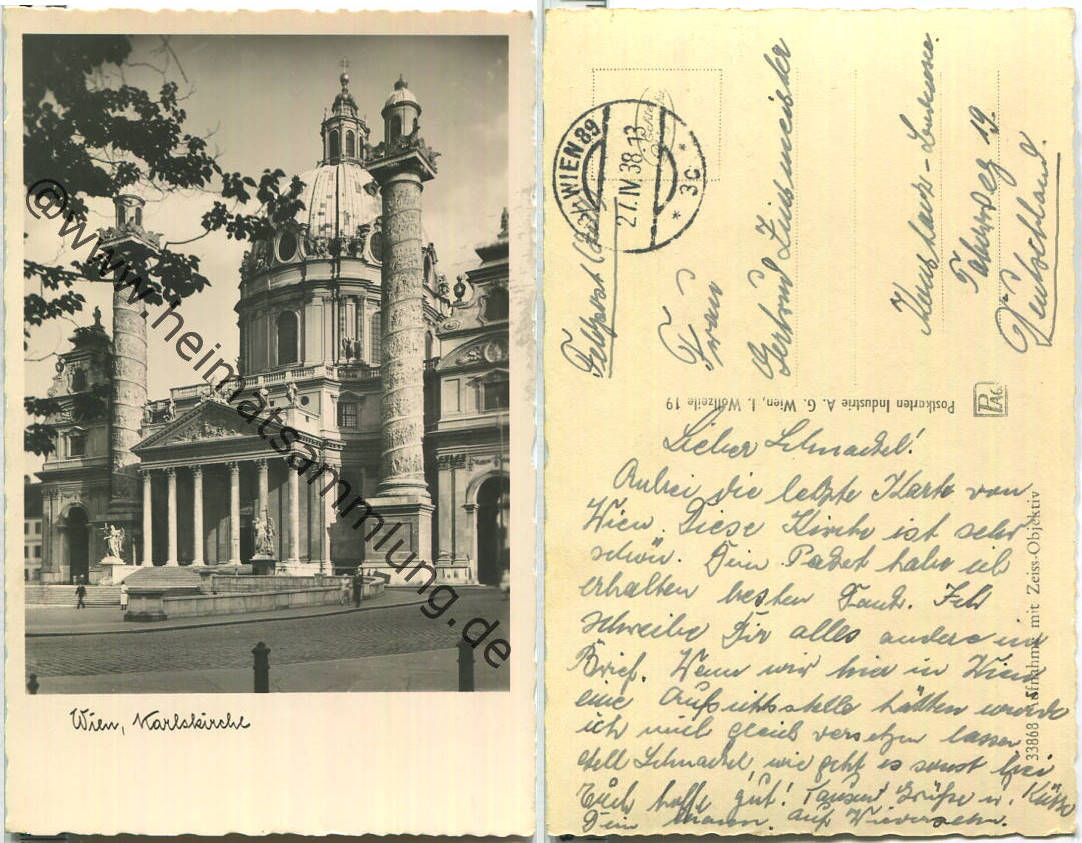 Wien, Karlskirche
@www.heimatsammlung.de
WIEN 89
27.IV.38.13
* 3c *
Feldpost
Frau
Gertrud
Konstanz
19
Deutschland.
Postkarten Industrie A. G. Wien, I. Wollzeile 19
PAG
33868 Aufnahme mit Zeiss-Objektiv
Lieber Schnackel!
Anbei die letzte Karte von
Wien. Diese Kirche ist sehr
schön. Dein Packet habe ich
erhalten besten Dank. Ich
schreibe Dir alles andere im
Brief. Wenn wir hier in Wien
eine Aufsichtsstelle hätten würde
ich mich gleich versetzen lassen
Schnackel, wie geht es sonst bei
Euch hoffe gut! Tausend Grüße u. Küsse
Dein Mann. Auf Wiedersehn.